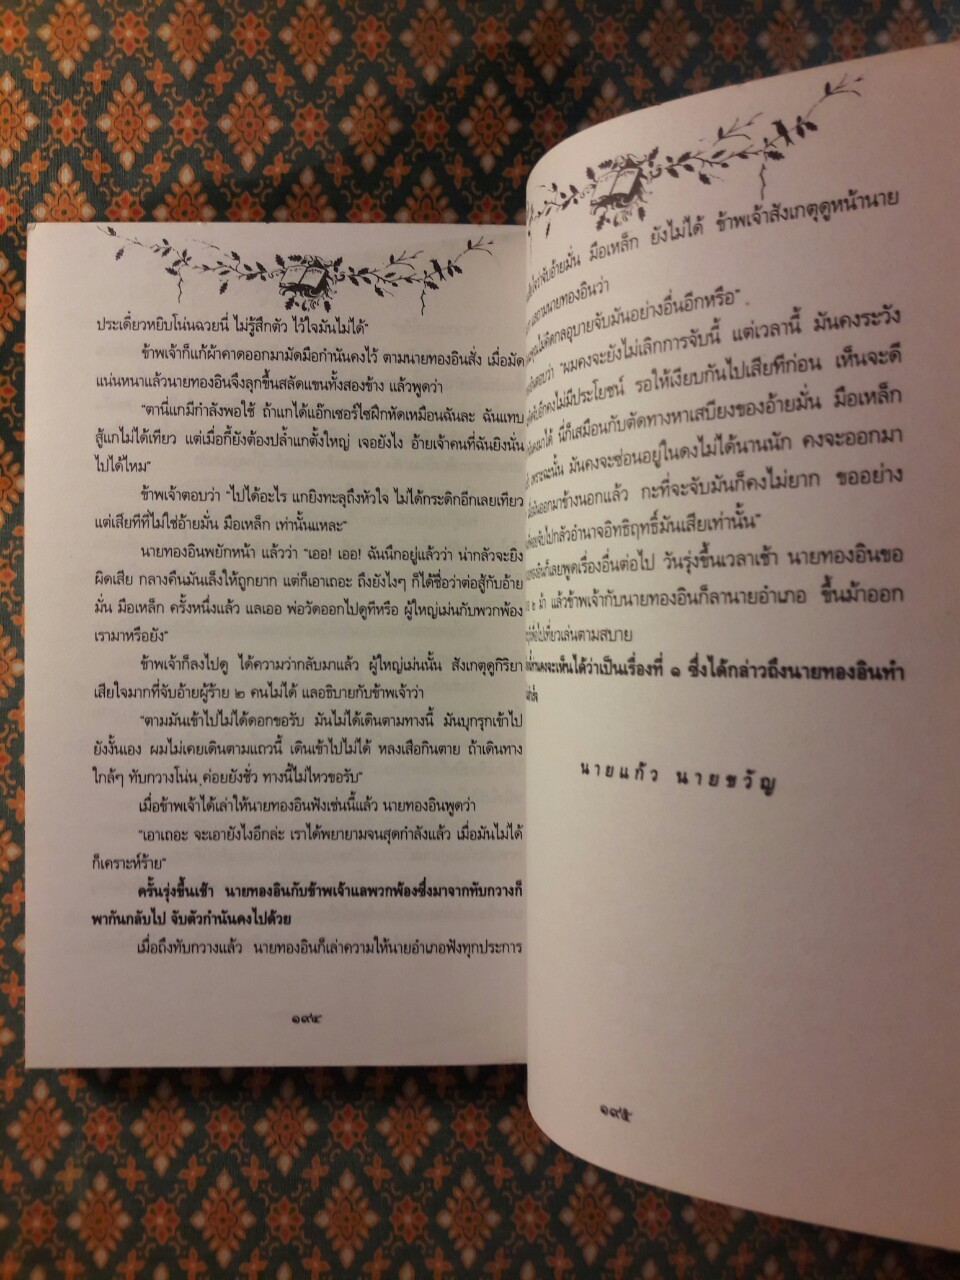 ประเดี๋ยวหยิบโน่นฉวยนี่ ไม่รู้สึกตัว ไว้ใจมันไม่ได้"
ข้าพเจ้าก็แก้ผ้าคาดออกมามัดมือกำนันคงไว้ ตามนายทองอินสั่ง เมื่อมัด
แน่นหนาแล้วนายทองอินจึงลุกขึ้นสลัดแขนทั้งสองข้าง แล้วพูดว่า
"ตานี่แกมีกำลังพอใช้ ถ้าแกได้แอ๊กเซอร์ไซฝึกหัดเหมือนฉันละ ฉันแทบ
สู้แกไม่ได้เทียว แต่เมื่อกี้ยังต้องปล้ำแกตั้งใหญ่ เจอยังไง อ้ายเจ้าคนที่ฉันยิงนั่น
ไปได้ไหม"
ข้าพเจ้าตอบว่า "ไปได้อะไร แกยิงทะลุถึงหัวใจ ไม่ได้กระดิกอีกเลยเทียว
แต่เสียทีที่ไม่ใช่อ้ายมั่น มือเหล็ก เท่านั้นแหละ"
นายทองอินพยักหน้า แล้วว่า "เออ! เออ! ฉันนึกอยู่แล้วว่า น่ากลัวจะยิง
ผิดเสีย กลางคืนมันเล็งให้ถูกยาก แต่ก็เอาเถอะ ถึงยังไงๆ ก็ได้ชื่อว่าต่อสู้กับอ้าย
มั่น มือเหล็ก ครั้งหนึ่งแล้ว แลเออ พ่อวัดออกไปดูทีหรือ ผู้ใหญ่เม่นกับพวกพ้อง
เรามาหรือยัง"
ข้าพเจ้าก็ลงไปดู ได้ความว่ากลับมาแล้ว ผู้ใหญ่เม่นนั้น สังเกตุดูกิริยา
เสียใจมากที่จับอ้ายผู้ร้าย ๒ คนไม่ได้ แลอธิบายกับข้าพเจ้าว่า
"ตามมันเข้าไปไม่ได้ดอกขอรับ มันไม่ได้เดินตามทางนี้ มันบุกรุกเข้าไป
ยังงั้นเอง ผมไม่เคยเดินตามแถวนี้ เดินเข้าไปไม่ได้ หลงเสือกินตาย ถ้าเดินทาง
ใกล้ๆ ทับกวางโน่น ค่อยยังชั่ว ทางนี้ไม่ไหวขอรับ"
เมื่อข้าพเจ้าได้เล่าให้นายทองอินฟังเช่นนี้แล้ว นายทองอินพูดว่า
"เอาเถอะ จะเอายังไงอีกล่ะ เราได้พยายามจนสุดกำลังแล้ว เมื่อมันไม่ได้
ก็เคราะห์ร้าย"
ครั้นรุ่งขึ้นเช้า นายทองอินกับข้าพเจ้าแลพวกพ้องซึ่งมาจากทับกวางก็
พากันกลับไป จับตัวกำนันคงไปด้วย
เมื่อถึงทับกวางแล้ว นายทองอินก็เล่าความให้นายอำเภอฟังทุกประการ
๑๙๔
จับอ้ายมั่น มือเหล็ก ยังไม่ได้ ข้าพเจ้าสังเกตุดูหน้านาย
ถามนายทองอินว่า
คิดกลอุบายจับมันอย่างอื่นอีกหรือ"
ตอบว่า "ผมคงจะยังไม่เลิกการจับนี้ แต่เวลานี้ มันคงระวัง
คงไม่มีประโยชน์ รอให้เงียบกันไปเสียทีก่อน เห็นจะดี
มาได้ นี่ก็เสมือนกับตัดทางหาเสบียงของอ้ายมั่น มือเหล็ก
เพราะฉะนั้น มันคงจะซ่อนอยู่ในดงไม่ได้นานนัก คงจะออกมา
ออกมาข้างนอกแล้ว กะที่จะจับมันก็คงไม่ยาก ขออย่าง
ไปกลัวอำนาจอิทธิฤทธิ์มันเสียเท่านั้น"
ก็เลยพูดเรื่องอื่นต่อไป วันรุ่งขึ้นเวลาเช้า นายทองอินขอ
๒ ม้า แล้วข้าพเจ้ากับนายทองอินก็ลานายอำเภอ ขึ้นม้าออก
ไปเที่ยวเล่นตามสบาย
จะเห็นได้ว่าเป็นเรื่องที่ ๑ ซึ่งได้กล่าวถึงนายทองอินทำ
นายแก้ว นายขวัญ
๑๙๕